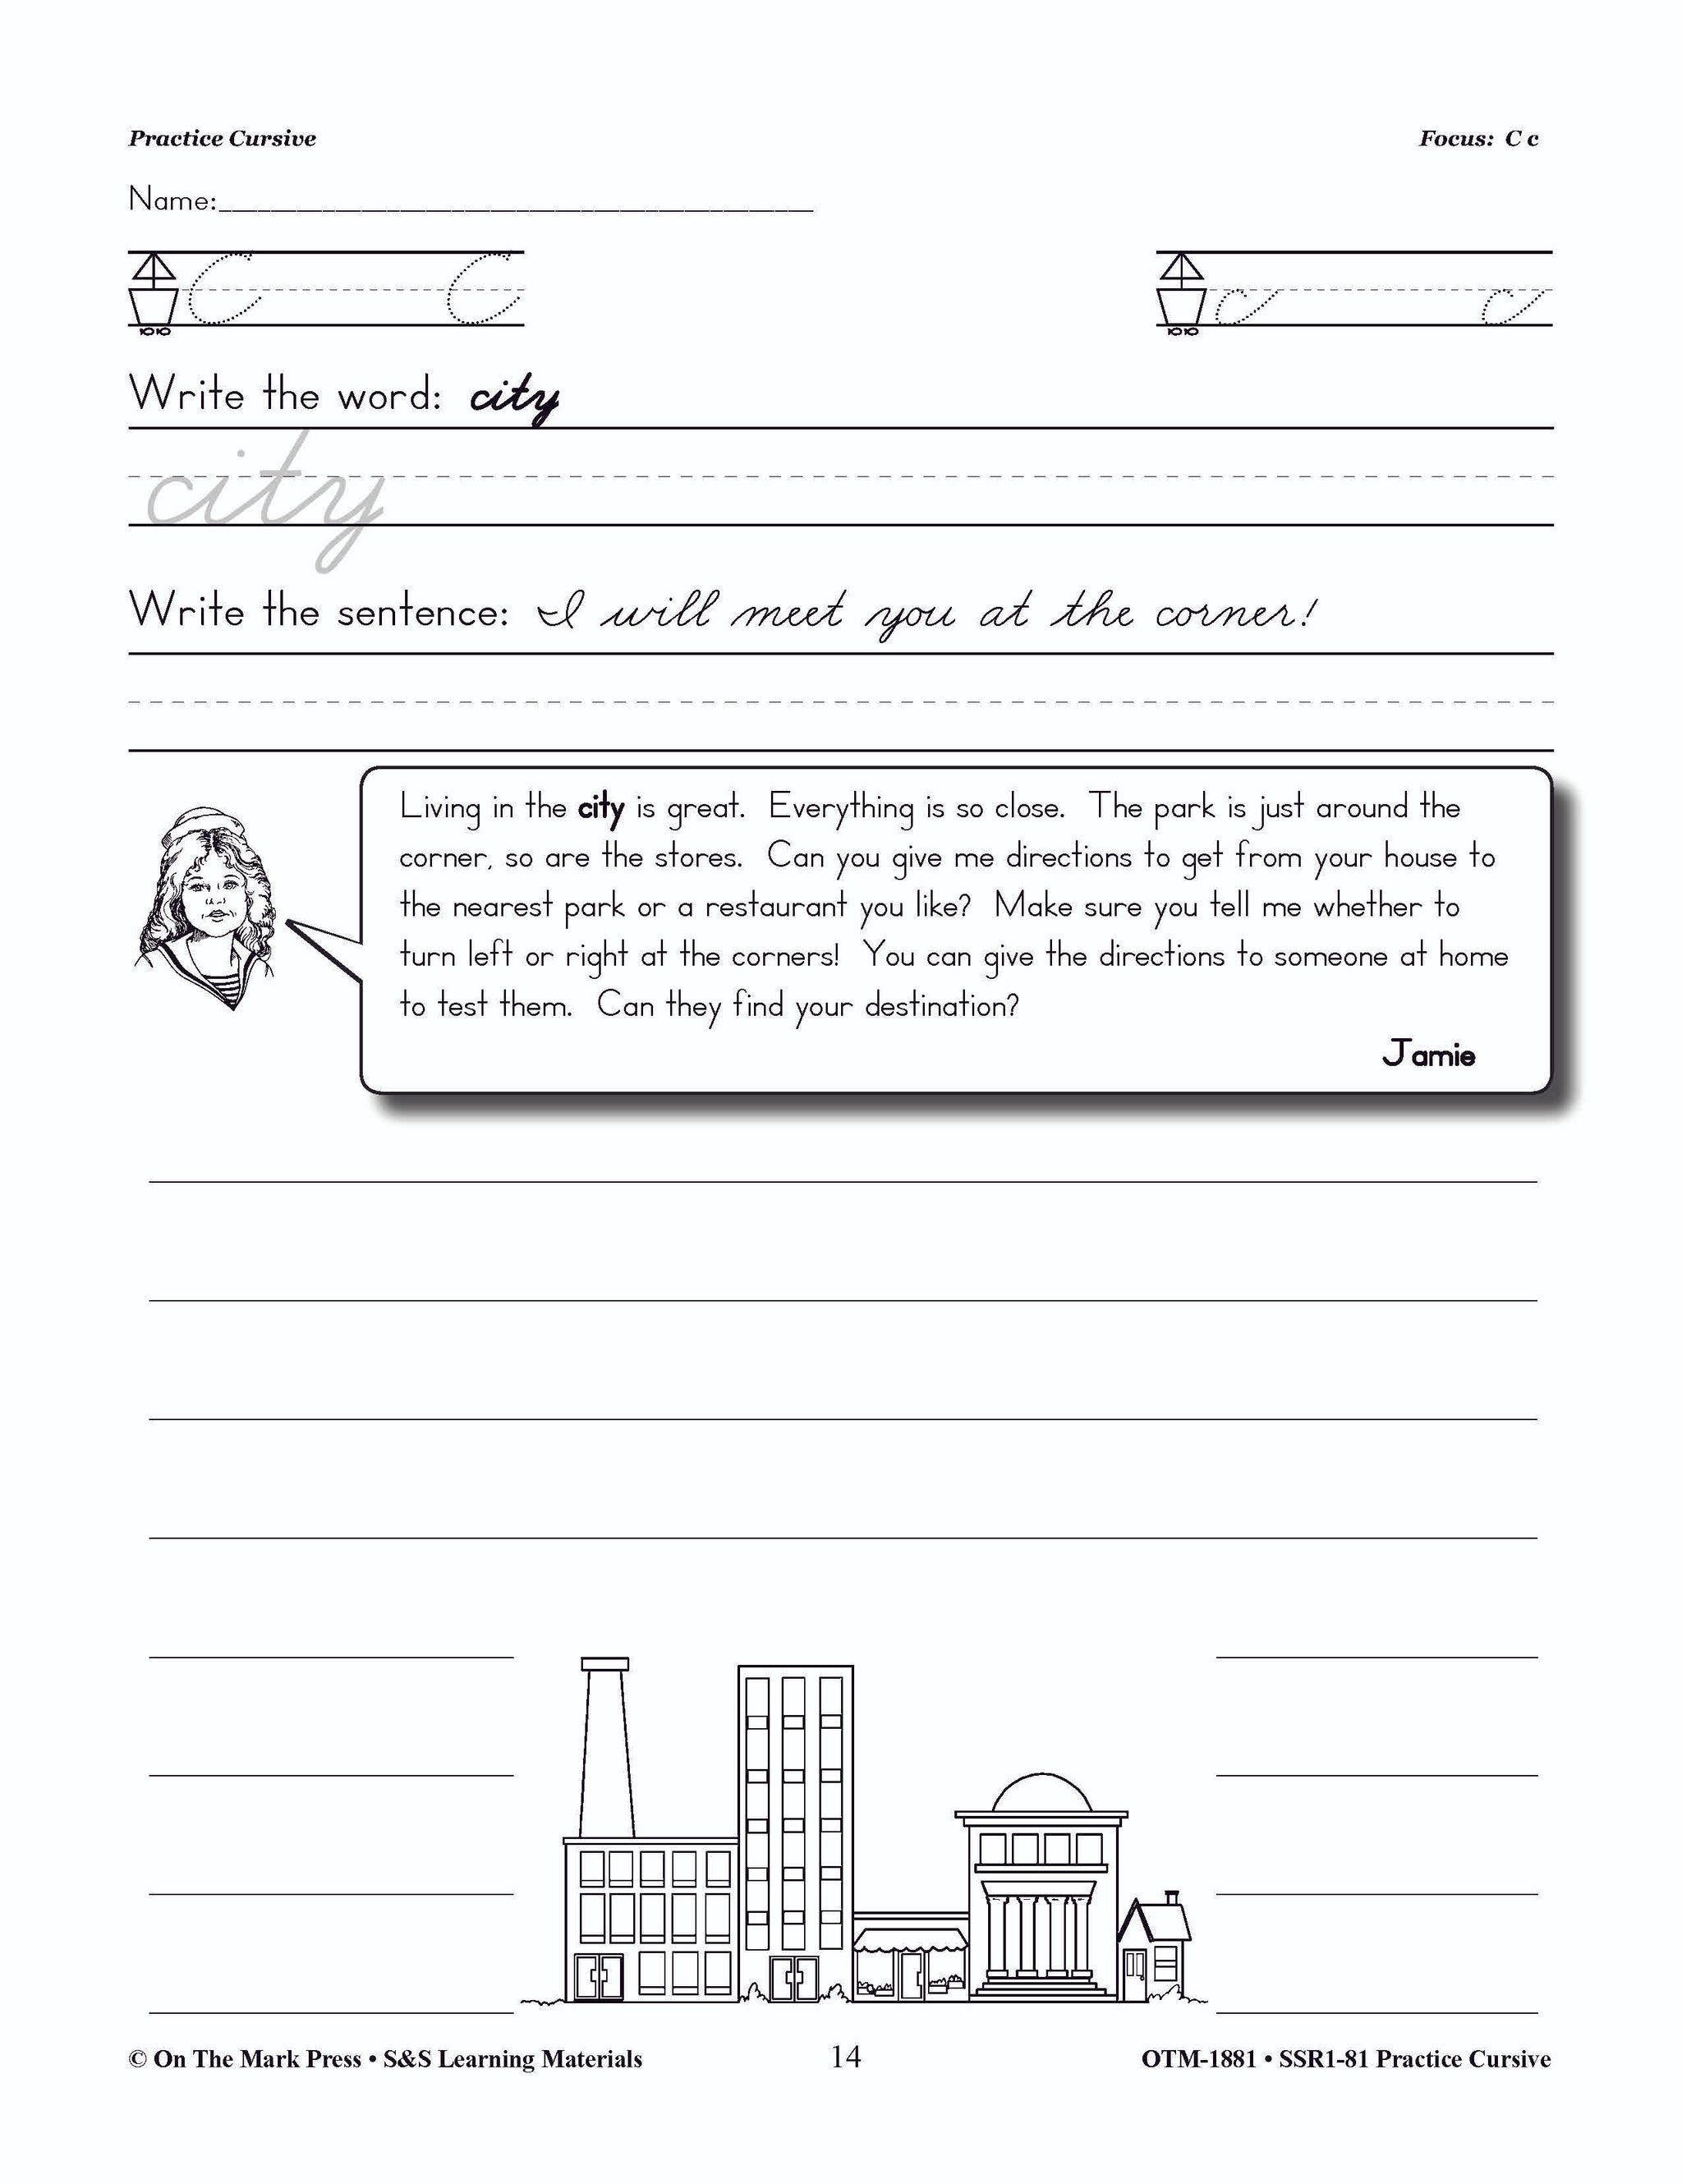 Practice Cursive
Focus: C c
Name:
C C
c c
Write the word: city
city
Write the sentence: I will meet you at the corner!
Living in the city is great. Everything is so close. The park is just around the
corner, so are the stores. Can you give me directions to get from your house to
the nearest park or a restaurant you like? Make sure you tell me whether to
turn left or right at the corners! You can give the directions to someone at home
to test them. Can they find your destination?
Jamie
© On The Mark Press • S&S Learning Materials
14
OTM-1881 • SSR1-81 Practice Cursive